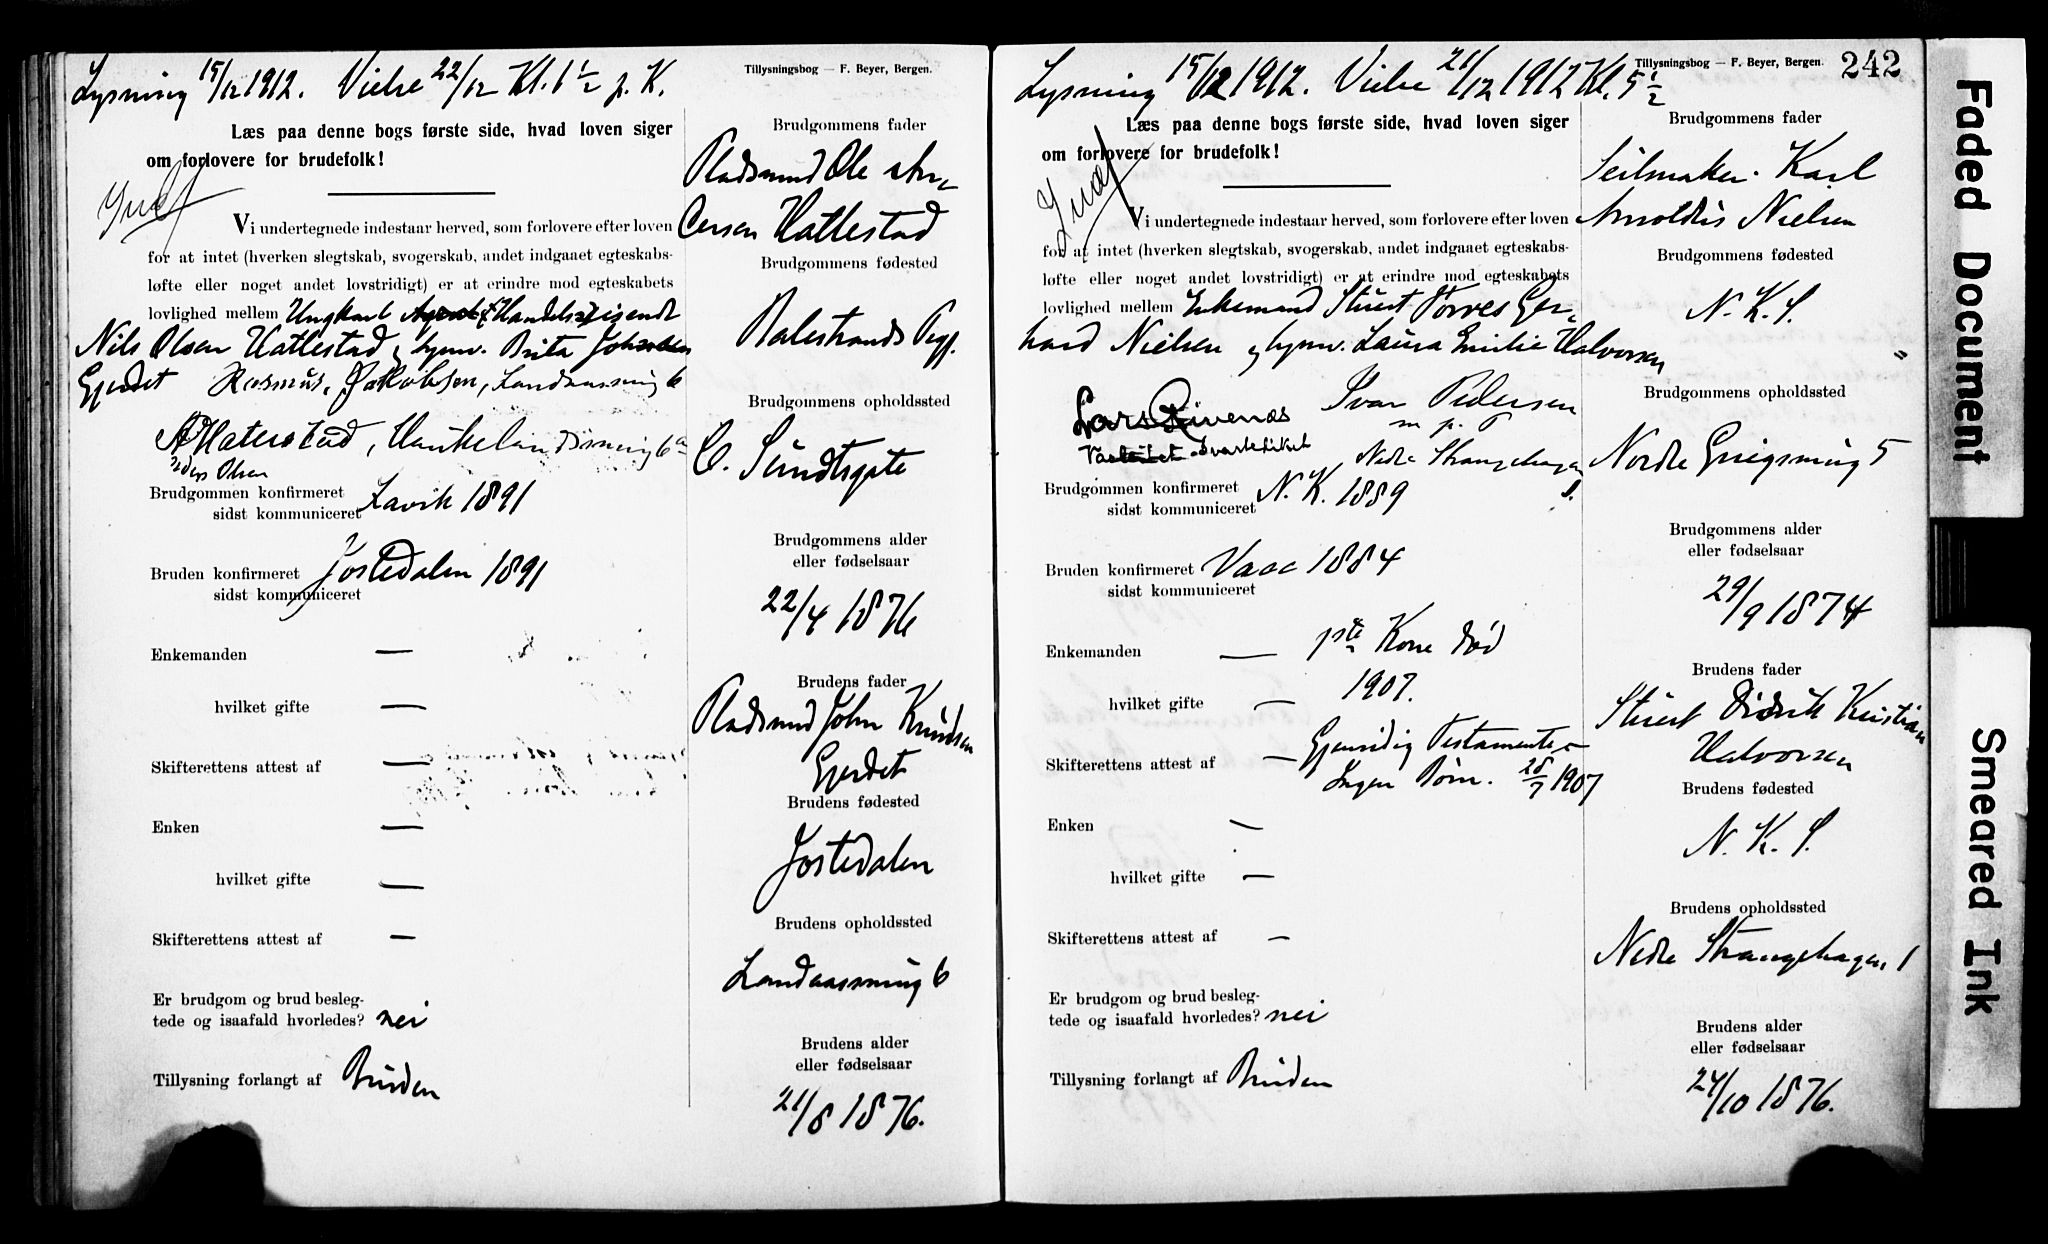 Lysning 15/12 1912. Vielse 22/12 Kl. 6 1/2 p. K.
Tillysningsbog — F. Beyer, Bergen.
Læs paa denne bogs første side, hvad loven siger
om forlovere for brudefolk!
Vi undertegnede indestaar herved, som forlovere efter loven
for at intet (hverken slegtskab, svogerskab, andet indgaaet egteskabs-
løfte eller noget andet lovstridigt) er at erindre mod egteskabets
lovlighed mellem Ungkarl Handelsreisende
Nils Olsen Hattestad og Brita
Gjerdet Rasmus Jakobsen, Landaasming 6
Haukelandsming 6
Brudgommen konfirmeret Lavik 1891
sidst kommuniceret
Bruden konfirmeret Jostedalen 1891
sidst kommuniceret
Enkemanden —
hvilket gifte —
Skifterettens attest af —
Enken —
hvilket gifte —
Skifterettens attest af —
Er brudgom og brud besleg-
tede og isaafald hvorledes? nei
Tillysning forlangt af Bruden
Brudgommens fader
Pladsmand Ole
Hattestad
Brudgommens fødested
Balestrands Pgj.
Brudgommens opholdssted
C. Sundtsgate
Brudgommens alder
eller fødselsaar
22/4 1876
Brudens fader
Pladsmand John Knudsen
Gjerdet
Brudens fødested
Jostedalen
Brudens opholdssted
Landaasming 6
Brudens alder
eller fødselsaar
21/8 1876.
Lysning 15/12 1912. Vielse 21/12 1912 Kl. 5 1/2
Tillysningsbog — F. Beyer, Bergen.
242
Læs paa denne bogs første side, hvad loven siger
om forlovere for brudefolk!
Vi undertegnede indestaar herved, som forlovere efter loven
for at intet (hverken slegtskab, svogerskab, andet indgaaet egteskabs-
løfte eller noget andet lovstridigt) er at erindre mod egteskabets
lovlighed mellem Enkemand Stuert Torres Ger-
hard Nielsen og Laura Emilie Halvorsen
Lars Ivar Pedersen
m. p. P
Nedre Strangehagen
1.
Brudgommen konfirmeret N. K. 1889
sidst kommuniceret
Bruden konfirmeret 1884
sidst kommuniceret
Enkemanden — 1ste Kone død
hvilket gifte — 1907.
Skifterettens attest af — Gjensidig Testamente
Ingen Børn. 1907
Enken —
hvilket gifte —
Skifterettens attest af —
Er brudgom og brud besleg-
tede og isaafald hvorledes? nei
Tillysning forlangt af Bruden
Brudgommens fader
Seilmaker Karl
Arnoldus Nielsen
Brudgommens fødested
N. K. S.
Brudgommens opholdssted
Nordre 5
Brudgommens alder
eller fødselsaar
29/9 1874
Brudens fader
Stuert Didrik Kristian
Halvorsen
Brudens fødested
N. K. S.
Brudens opholdssted
Nedre Strangehagen 1
Brudens alder
eller fødselsaar
24/10 1876.
Faded Document
Smeared Ink